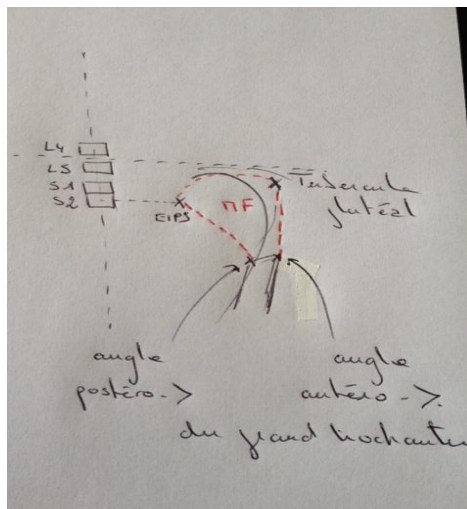 L4
L5
S1
S2
EIPS
MF
Tubercule
glutéal
angle
postéro ->
angle
antéro ->.
du grand trochanter